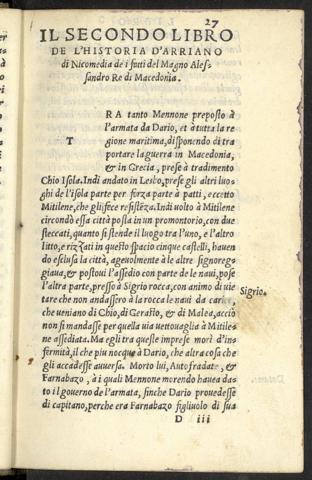 27
IL SECONDO LIBRO
DE L'HISTORIA D'ARRIANO
di Nicomedia de i fatti del Magno Ales-
sandro Re di Macedonia.
T
RA tanto Mennone preposto à
l'armata da Dario, et à tutta la re
gione maritima, disponendo di tra
portare la guerra in Macedonia,
& in Grecia, prese à tradimento
Chio Isola. Indi andato in Lesbo, prese gli altri luo-
ghi de l'isola parte per forza parte à patti, eccetto
Mitilene, che gli fece resistēza. Indi uolto à Mitilene
circondò essa città posta in un promontorio, con due
steccati, quanto si stende il luogo tra l'uno, e l'altro
litto, e rizzati in questo spacio cinque castelli, hauen
do esclusa la città, ageuolmente à le altre signoreg-
giaua, & postoui l'assedio con parte de le naui, pose
l'altra parte, presso à Sigrio rocca, con animo di uie
tare che non andassero à la rocca le naui da carico,
che ueniano di Chio, di Gerasto, & di Malea, acciò
non si mandasse per quella uia uettouaglia à Mitile-
ne assediata. Ma egli tra quelle imprese morì d'in-
fermità, il che piu nocque à Dario, che altra cosa che
gli accadesse auuersa. Morto lui, Autofradate, &
Farnabazo, à i quali Mennone morendo hauea da-
to il gouerno de l'armata, sinche Dario prouedesse
di capitano, perche era Farnabazo figliuolo di sua
Sigrio.
D iii